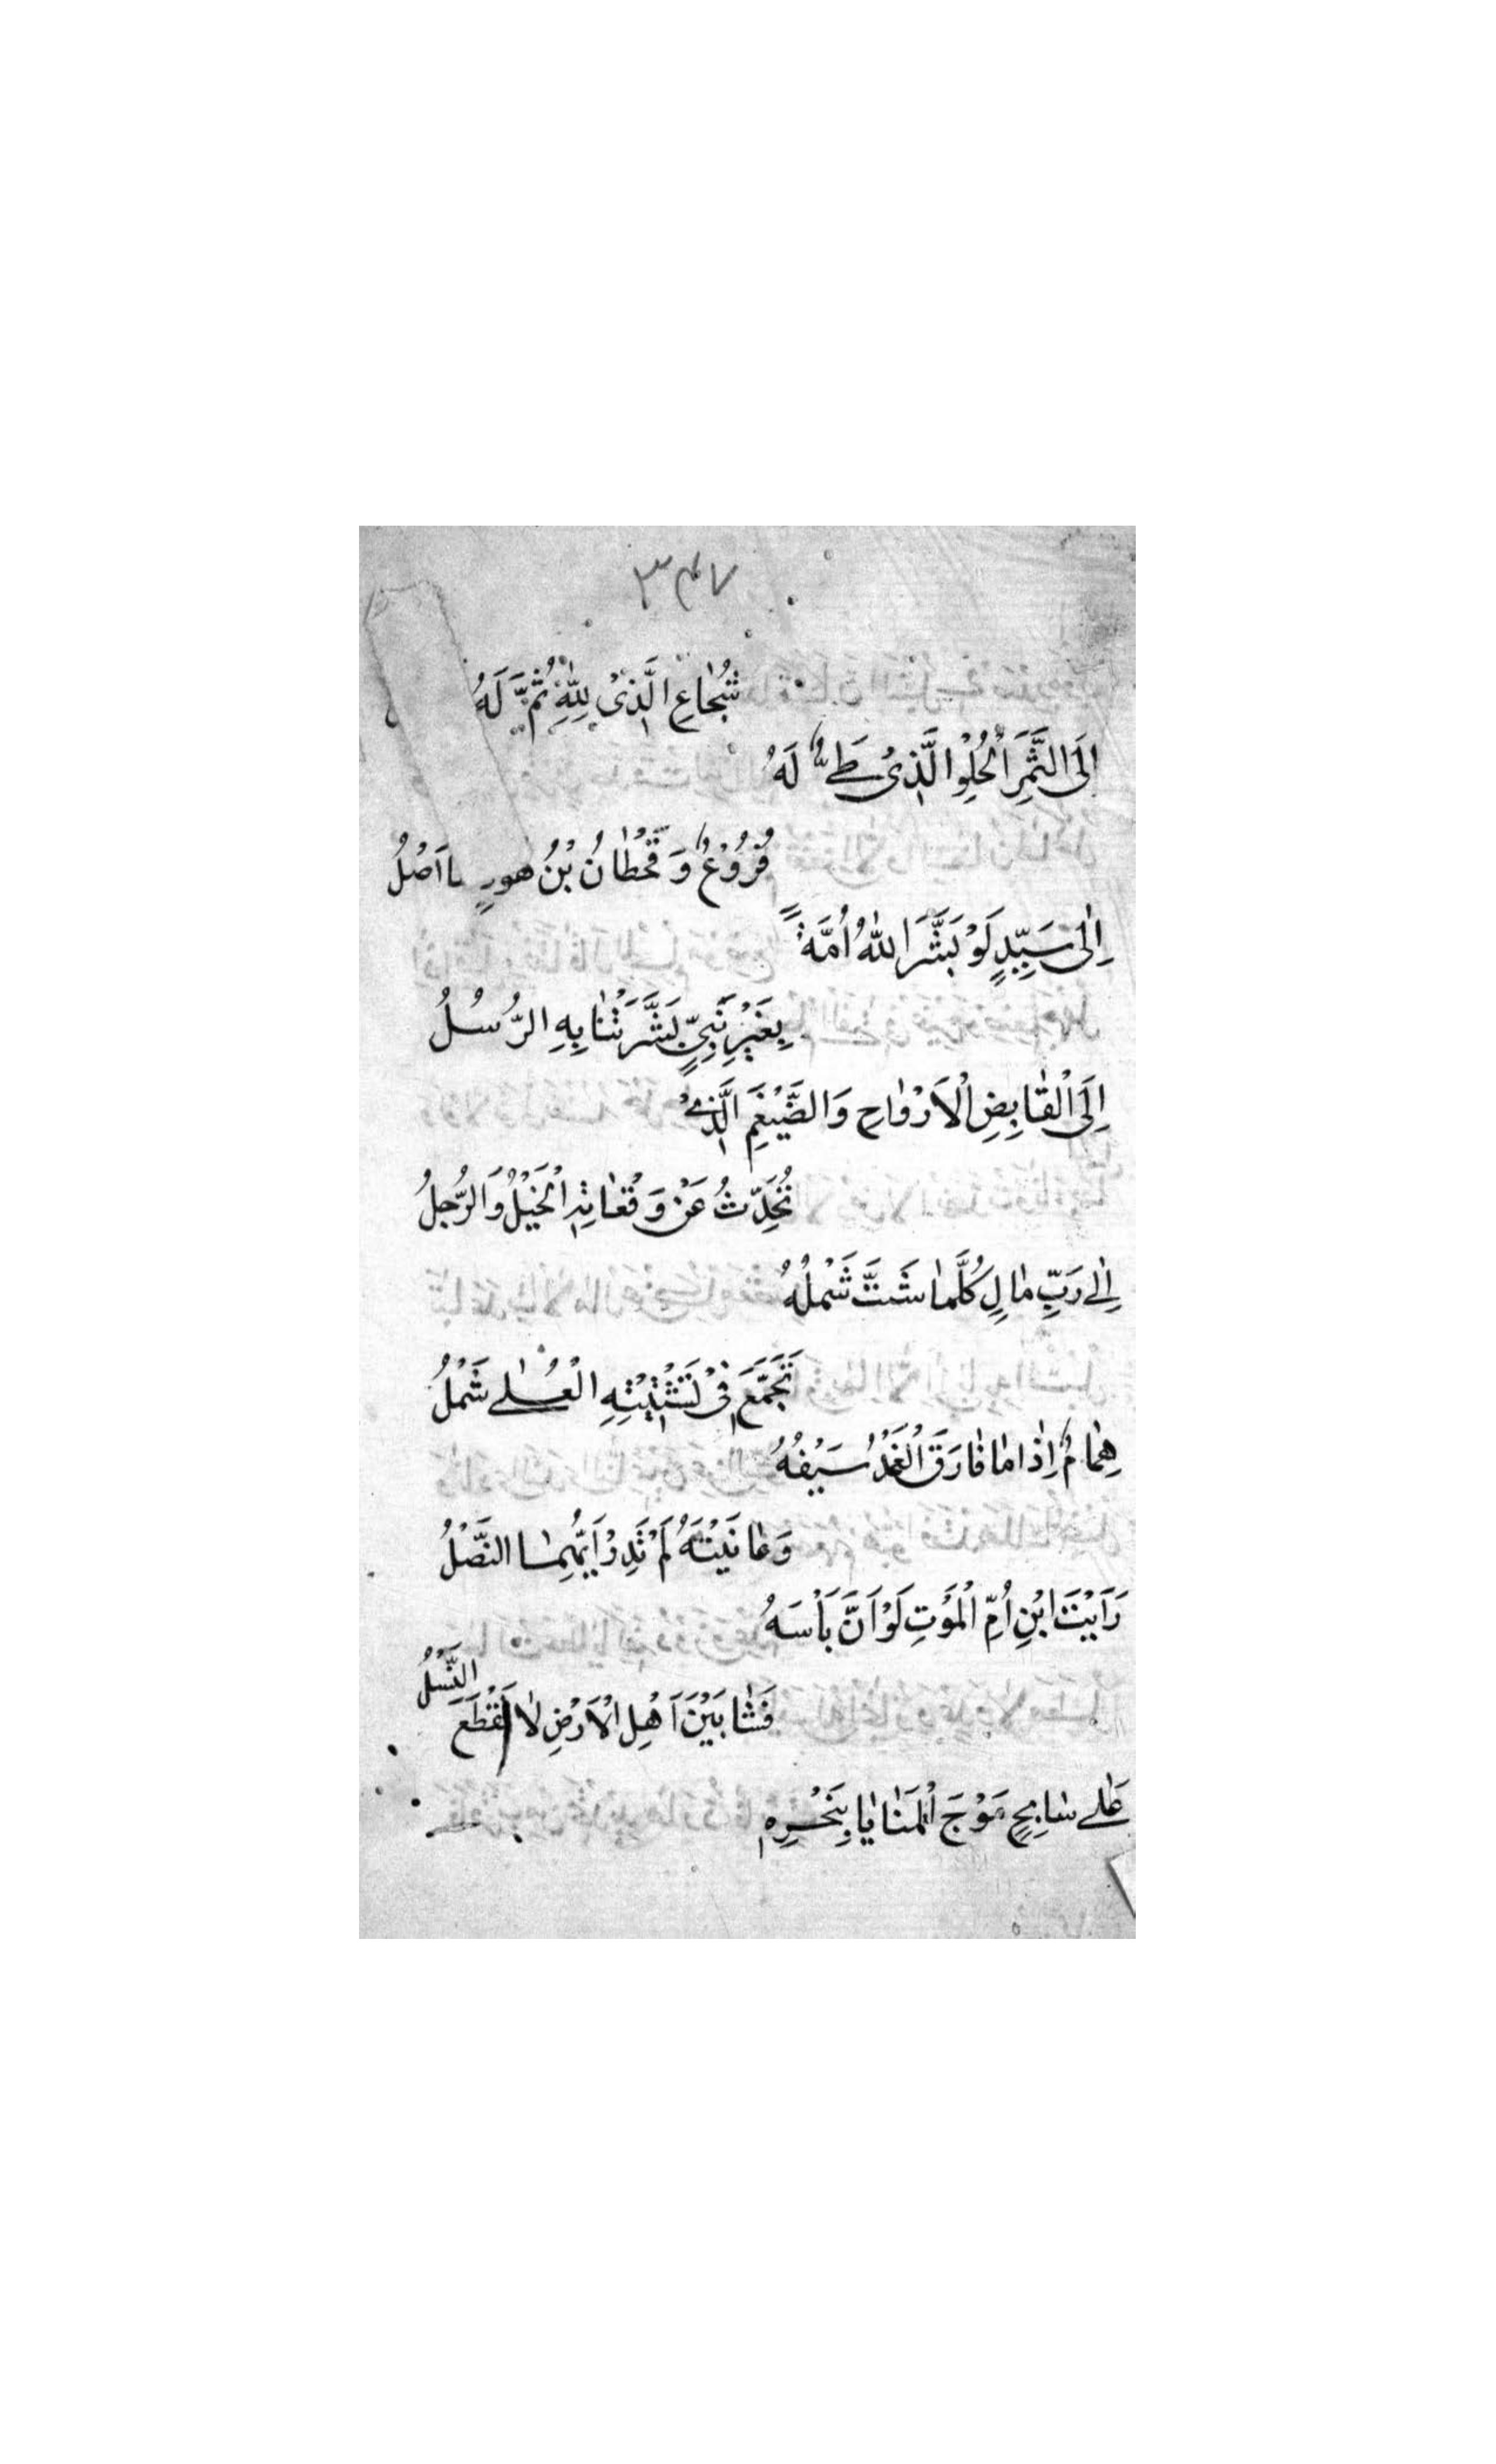 ٣٣٧
شُجٰاعِ الَّذِىْ لِلّٰهِ ثُمَّ لَهُ
اِلَى الثَّمَرِ الْحُلْوِ الَّذِىْ طَےٌّ لَهُ
فُرُوْعٌ وَقَحْطٰانُ بْنُ هودٍ اَصْلُ
اِلٰى سَيِّدٍ لَوْ بَشَّرَ اللّٰهُ اُمَّةً
بِغَيْرِ نَبِىٍّ بَشَّرَتْنٰا بِهِ الرُّسُلُ
اِلَى الْقٰابِضِ الْاَرْوٰاحِ وَالضَّيْغَمِ الَّذِےْ
تُحَدِّثُ عَنْ وَقْعٰاتِهِ الْخَيْلُ وَالرَّجِلُ
اِلٰے رَبِّ مٰالٍ كُلَّمٰا شَتَّ شَمْلُهُ
تَجَمَّعَ فِىْ تَشْتِيْتِهِ الْعُلٰے شَمْلُ
هِمٰامٌ اِذٰا مٰا فٰارَقَ الْغَمْدُ سَيْفُهُ
وَعٰانَيْتَهُ لَمْ تَدِرْ اَيُّهِمٰا النَّصْلُ
رَاَيْتَ ابْنِ اُمِّ الْمَوْتِ لَوْ اَنَّ بَاْسَهُ
فَشٰا بَيْنَ اَهْلِ الْاَرْضِ لٰانْقَطَعَ النَّسْلُ
عَلٰے سٰابِحٍ مَوْجَ الْمَنٰايٰا بِنَحْرِهِ